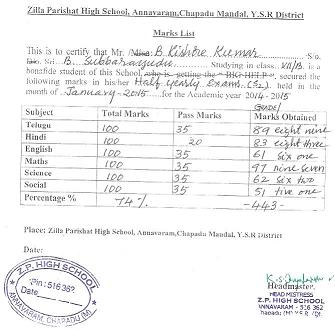 Zilla Parishat High School, Annavaram, Chapadu Mandal, Y.S.R District
Marks List
This is to certify that Mr. /Miss. B. Kishore Kumar S/o.
D/o. Sri B. Subbarayudu Studying in class VII/B is a
bonafide student of this School, who is getting the "BIG HELP", secured the
following marks in his/her Half yearly Exam. held in the
month of January-2015 for the Academic year 2014-2015
Subject Total Marks Pass Marks Marks Obtained
Telugu 100 35 89 eight nine
Hindi 100 20 83 eight three
English 100 35 61 six one
Maths 100 35 97 nine seven
Science 100 35 62 six two
Social 100 35 51 five one
Percentage % 74% -443-
Place: Zilla Parishat High School, Annavaram, Chapadu Mandal, Y.S.R District
Date:
Z.P. HIGH SCHOOL
Pin: 516 362
Date
ANNAVARAM, CHAPADU (M)
Headmaster.
HEAD MISTRESS
Z.P. HIGH SCHOOL